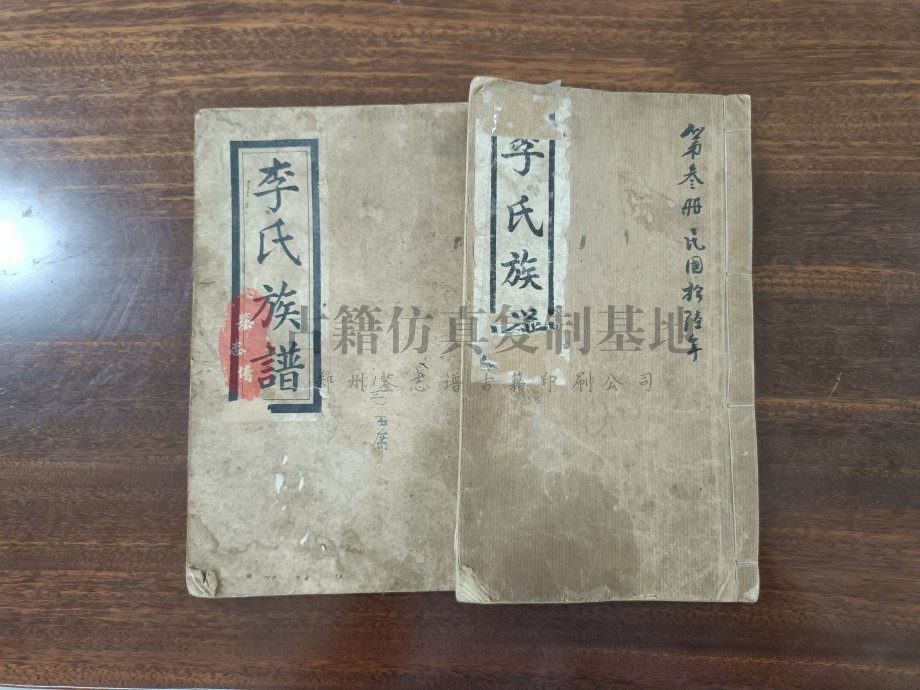 李氏族譜
李氏族
第叁册 民國拾陸年
古籍仿真复制基地
郑州鉴志谱古籍印刷公司
鉴志谱